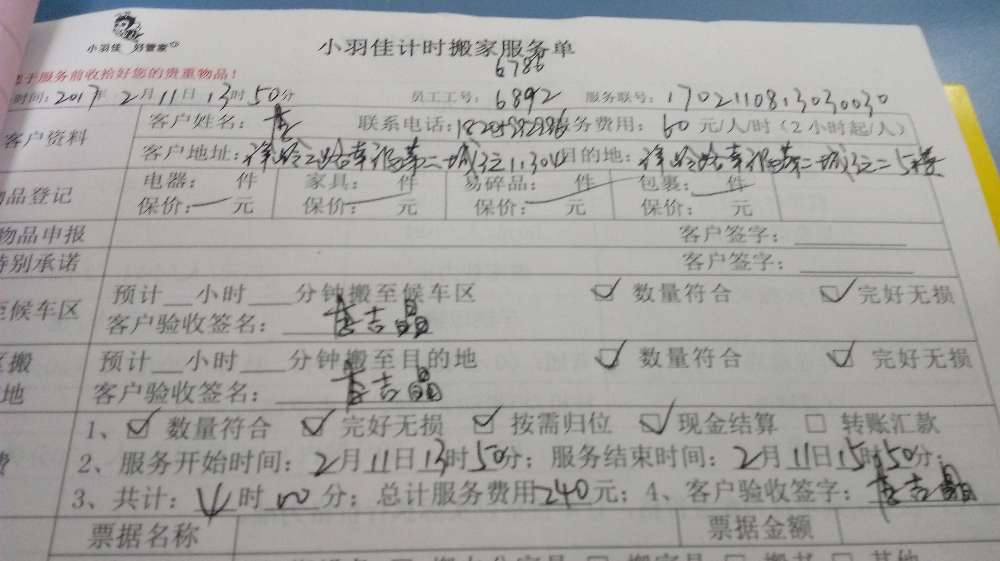 小羽佳 好管家
小羽佳计时搬家服务单
6786
于服务前收拾好您的贵重物品！
时间：2017年2月11日13时50分 员工工号：6892 服务联号：1702110813030030
客户资料 客户姓名：李 联系电话： 服务费用：60元/人/时（2小时起/人）
客户地址： 目的地：
物品登记 电器： 件 家具： 件 易碎品： 件 包裹： 件
保价： 元 保价： 元 保价： 元 保价： 元
物品申报 客户签字：
特别承诺 客户签字：
至候车区 预计 小时 分钟搬至候车区 ☑ 数量符合 ☑ 完好无损
客户验收签名：李吉晶
搬 预计 小时 分钟搬至目的地 ☑ 数量符合 ☑ 完好无损
地 客户验收签名：李吉晶
1、☑ 数量符合 ☑ 完好无损 ☑ 按需归位 ☑ 现金结算 □ 转账汇款
费 2、服务开始时间：2月11日13时50分；服务结束时间：2月11日15时50分；
3、共计：4时00分；总计服务费用240元；4、客户验收签字：李吉晶
票据名称 票据金额